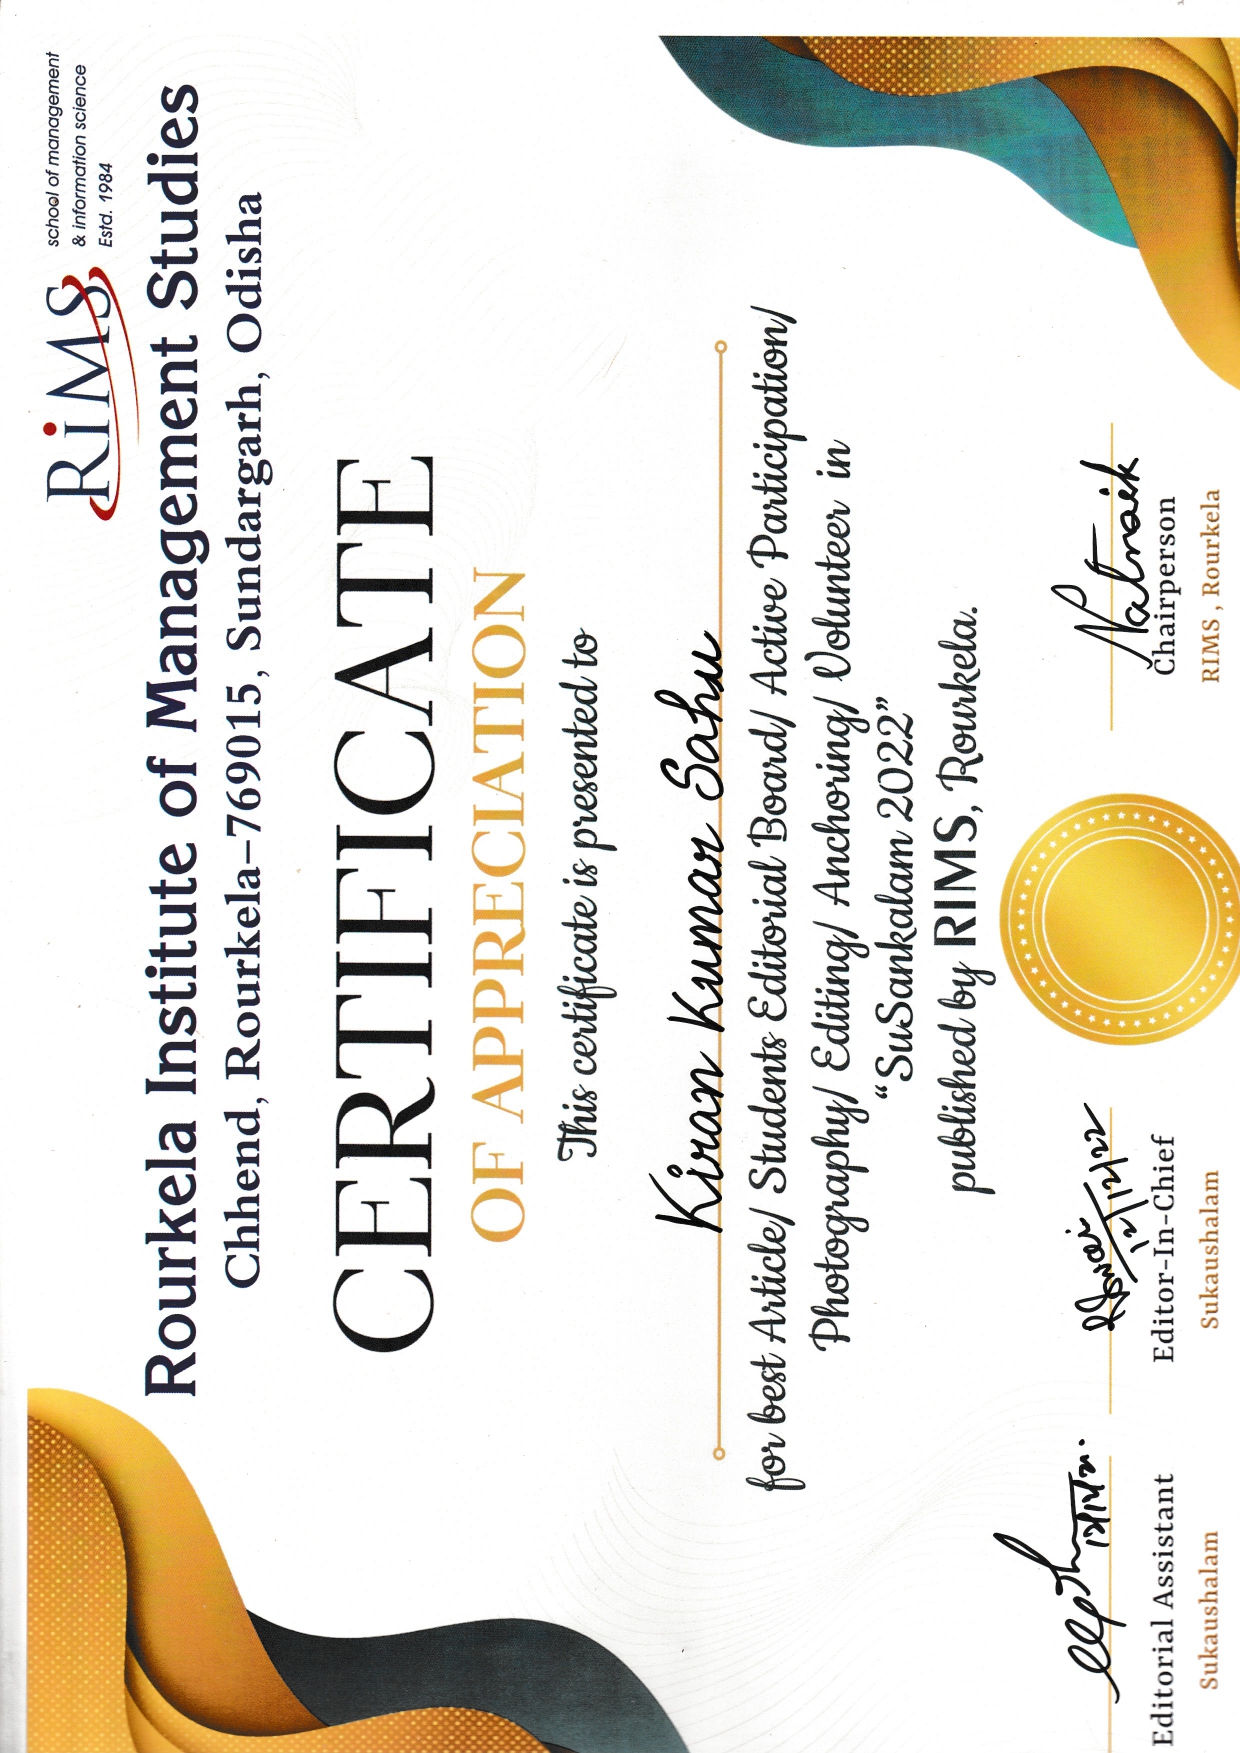 RiMS
school of management
& information science
Estd. 1984
Rourkela Institute of Management Studies
Chhend, Rourkela–769015, Sundargarh, Odisha
CERTIFICATE
OF APPRECIATION
This certificate is presented to
Kiran Kumar Sahu
for best Article/ Students Editorial Board/ Active Participation/
Photography/ Editing/ Anchoring/ Volunteer in
“SuSankalam 2022”
published by RIMS, Rourkela.
12/12/22
Patnaik
Editorial Assistant Editor-In-Chief Chairperson
Sukaushalam Sukaushalam RIMS , Rourkela